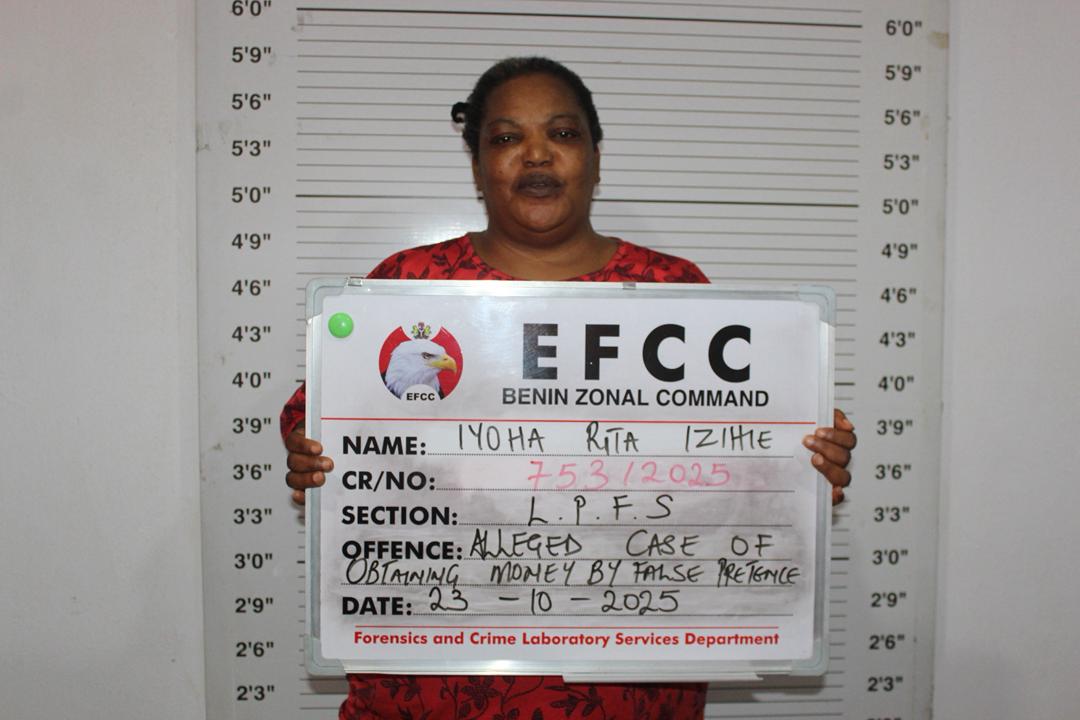 6'0"
6'0"
5'9"
5'9"
5'6"
5'6"
5'3"
5'3"
5'0"
5'0"
4'9"
4'9"
4'6"
4'6"
4'3"
4'3"
4'0"
4'0"
3'9"
3'9"
3'6"
3'6"
3'3"
3'3"
3'0"
3'0"
2'9"
2'9"
2'6"
2'6"
2'3"
2'3"
EFCC
EFCC
BENIN ZONAL COMMAND
NAME: IYOHA RITA IZIHIE
CR/NO: 753/2025
SECTION: L.P.F.S
OFFENCE: ALLEGED CASE OF
OBTAINING MONEY BY FALSE PRETENCE
DATE: 23-10-2025
Forensics and Crime Laboratory Services Department